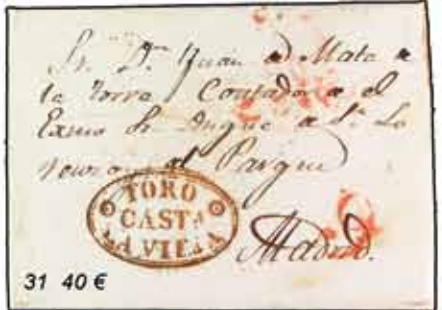 Sr. Dn. Juan de Mata de
la Torre Contador de el
Exmo Sr. Duque de Sn. Lo
renzo, al Parque
TORO
CASTA
LA VIEJA
Madrid.
31 40 €